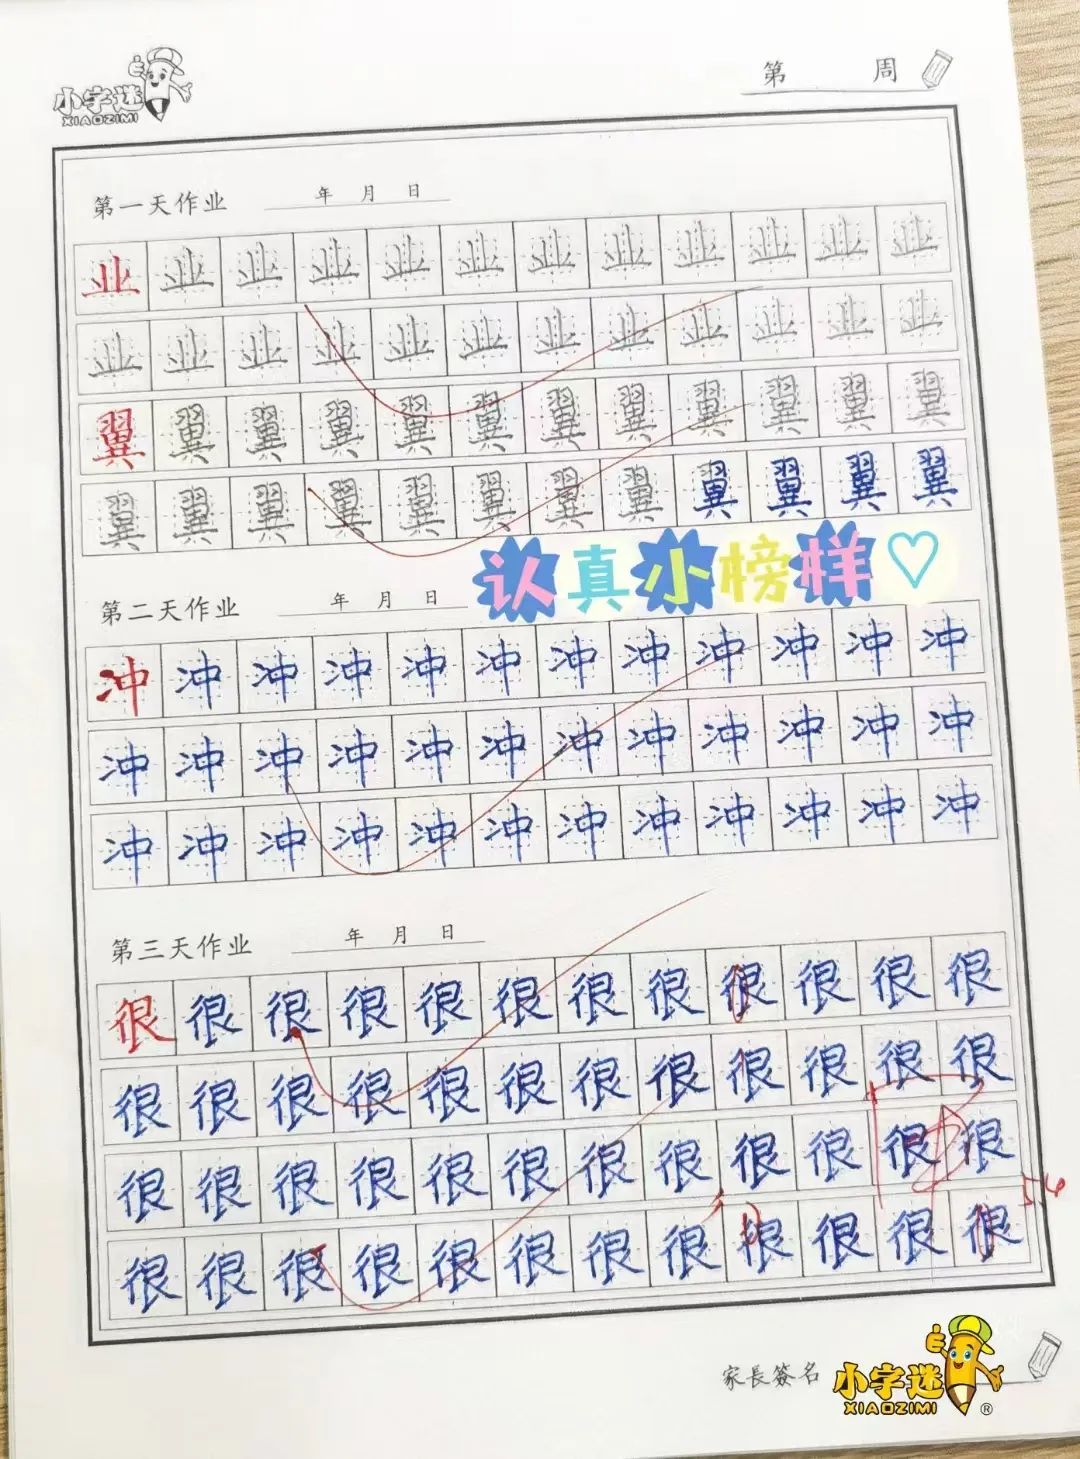 小字迷
XIAOZIMI
第 周
第一天作业 年 月 日
业业业业业业业业业业业业
业业业业业业业业业业业业
翼翼翼翼翼翼翼翼翼翼翼翼
翼翼翼翼翼翼翼翼翼翼翼翼
认真小榜样
第二天作业 年 月 日
冲冲冲冲冲冲冲冲冲冲冲冲
冲冲冲冲冲冲冲冲冲冲冲冲
冲冲冲冲冲冲冲冲冲冲冲冲
第三天作业 年 月 日
很很很很很很很很很很很很
很很很很很很很很很很很很
很很很很很很很很很很很很
5.6
很很很很很很很很很很很很
家長簽名
小字迷
XIAOZIMI ®